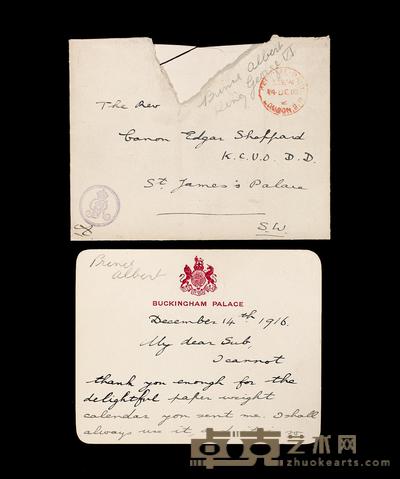 Prince Albert
King George VI
The Rev
Canon Edgar Sheppard
K.C.V.O. D.D.
St. James's Palace
S.W.
Prince
Albert
BUCKINGHAM PALACE
December 14th 1916.
My dear Sub,
I cannot
thank you enough for the
delightful paper weight
calendar you sent me. I shall
always use it
卓克艺术网
zhuokearts.com